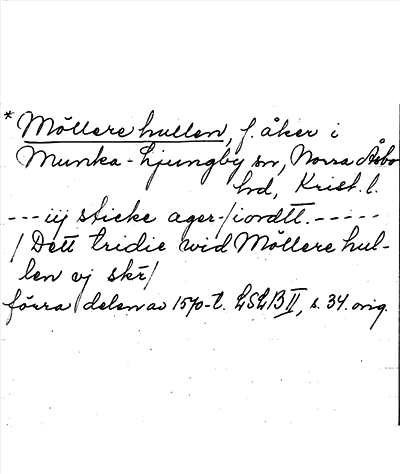 * Möllere hullen, f. åker i
Munka-Ljungby sn, Norra Åsbo
hd, Krist. l.
--- iij sticke ager /iordtt. -----
/ Dett tridie wid Möllere hul-
len vj skr /
förra delen av 1570-t. LSLB II, s. 34. orig.